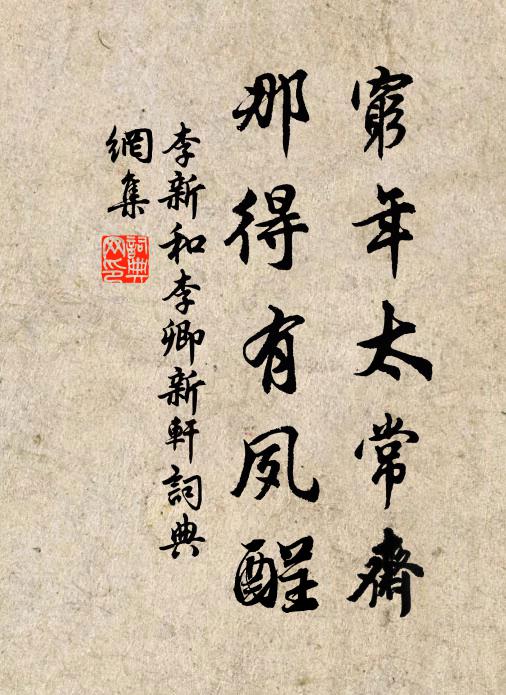 窮年太常齋
那得有夙酲
李新和李卿新軒詞典
網集
詞典
网印